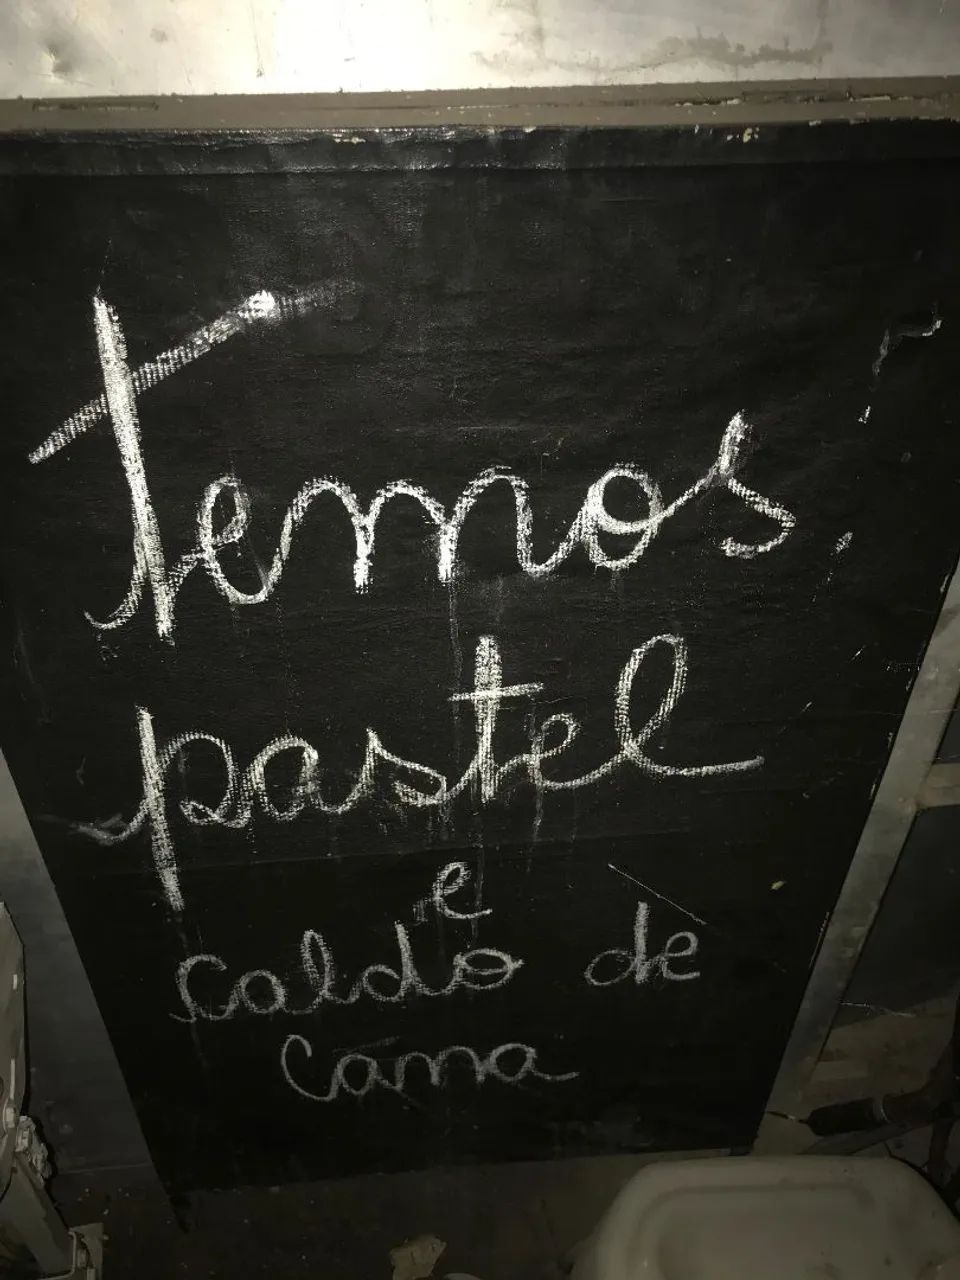 temos,
pastel
e
caldo de
cana